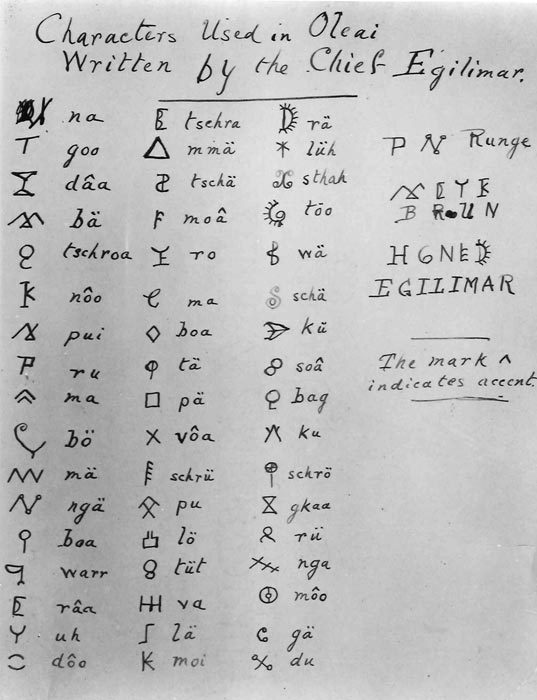 Characters Used in Oleai
Written by the Chief Egilimar.
na
goo
dâa
bä
tschroa
nôo
pui
ru
ma
bö
mä
ngä
boa
warr
râa
uh
dôo
tschra
mmä
tschä
moâ
ro
ma
boa
tä
pä
vôa
schrü
pu
lö
tüt
va
lä
moi
rä
lüh
sthah
töo
wä
schä
kü
soâ
bag
ku
schrö
gkaa
rü
nga
môo
gä
du
Runge
EGILIMAR
The mark ^
indicates accent.